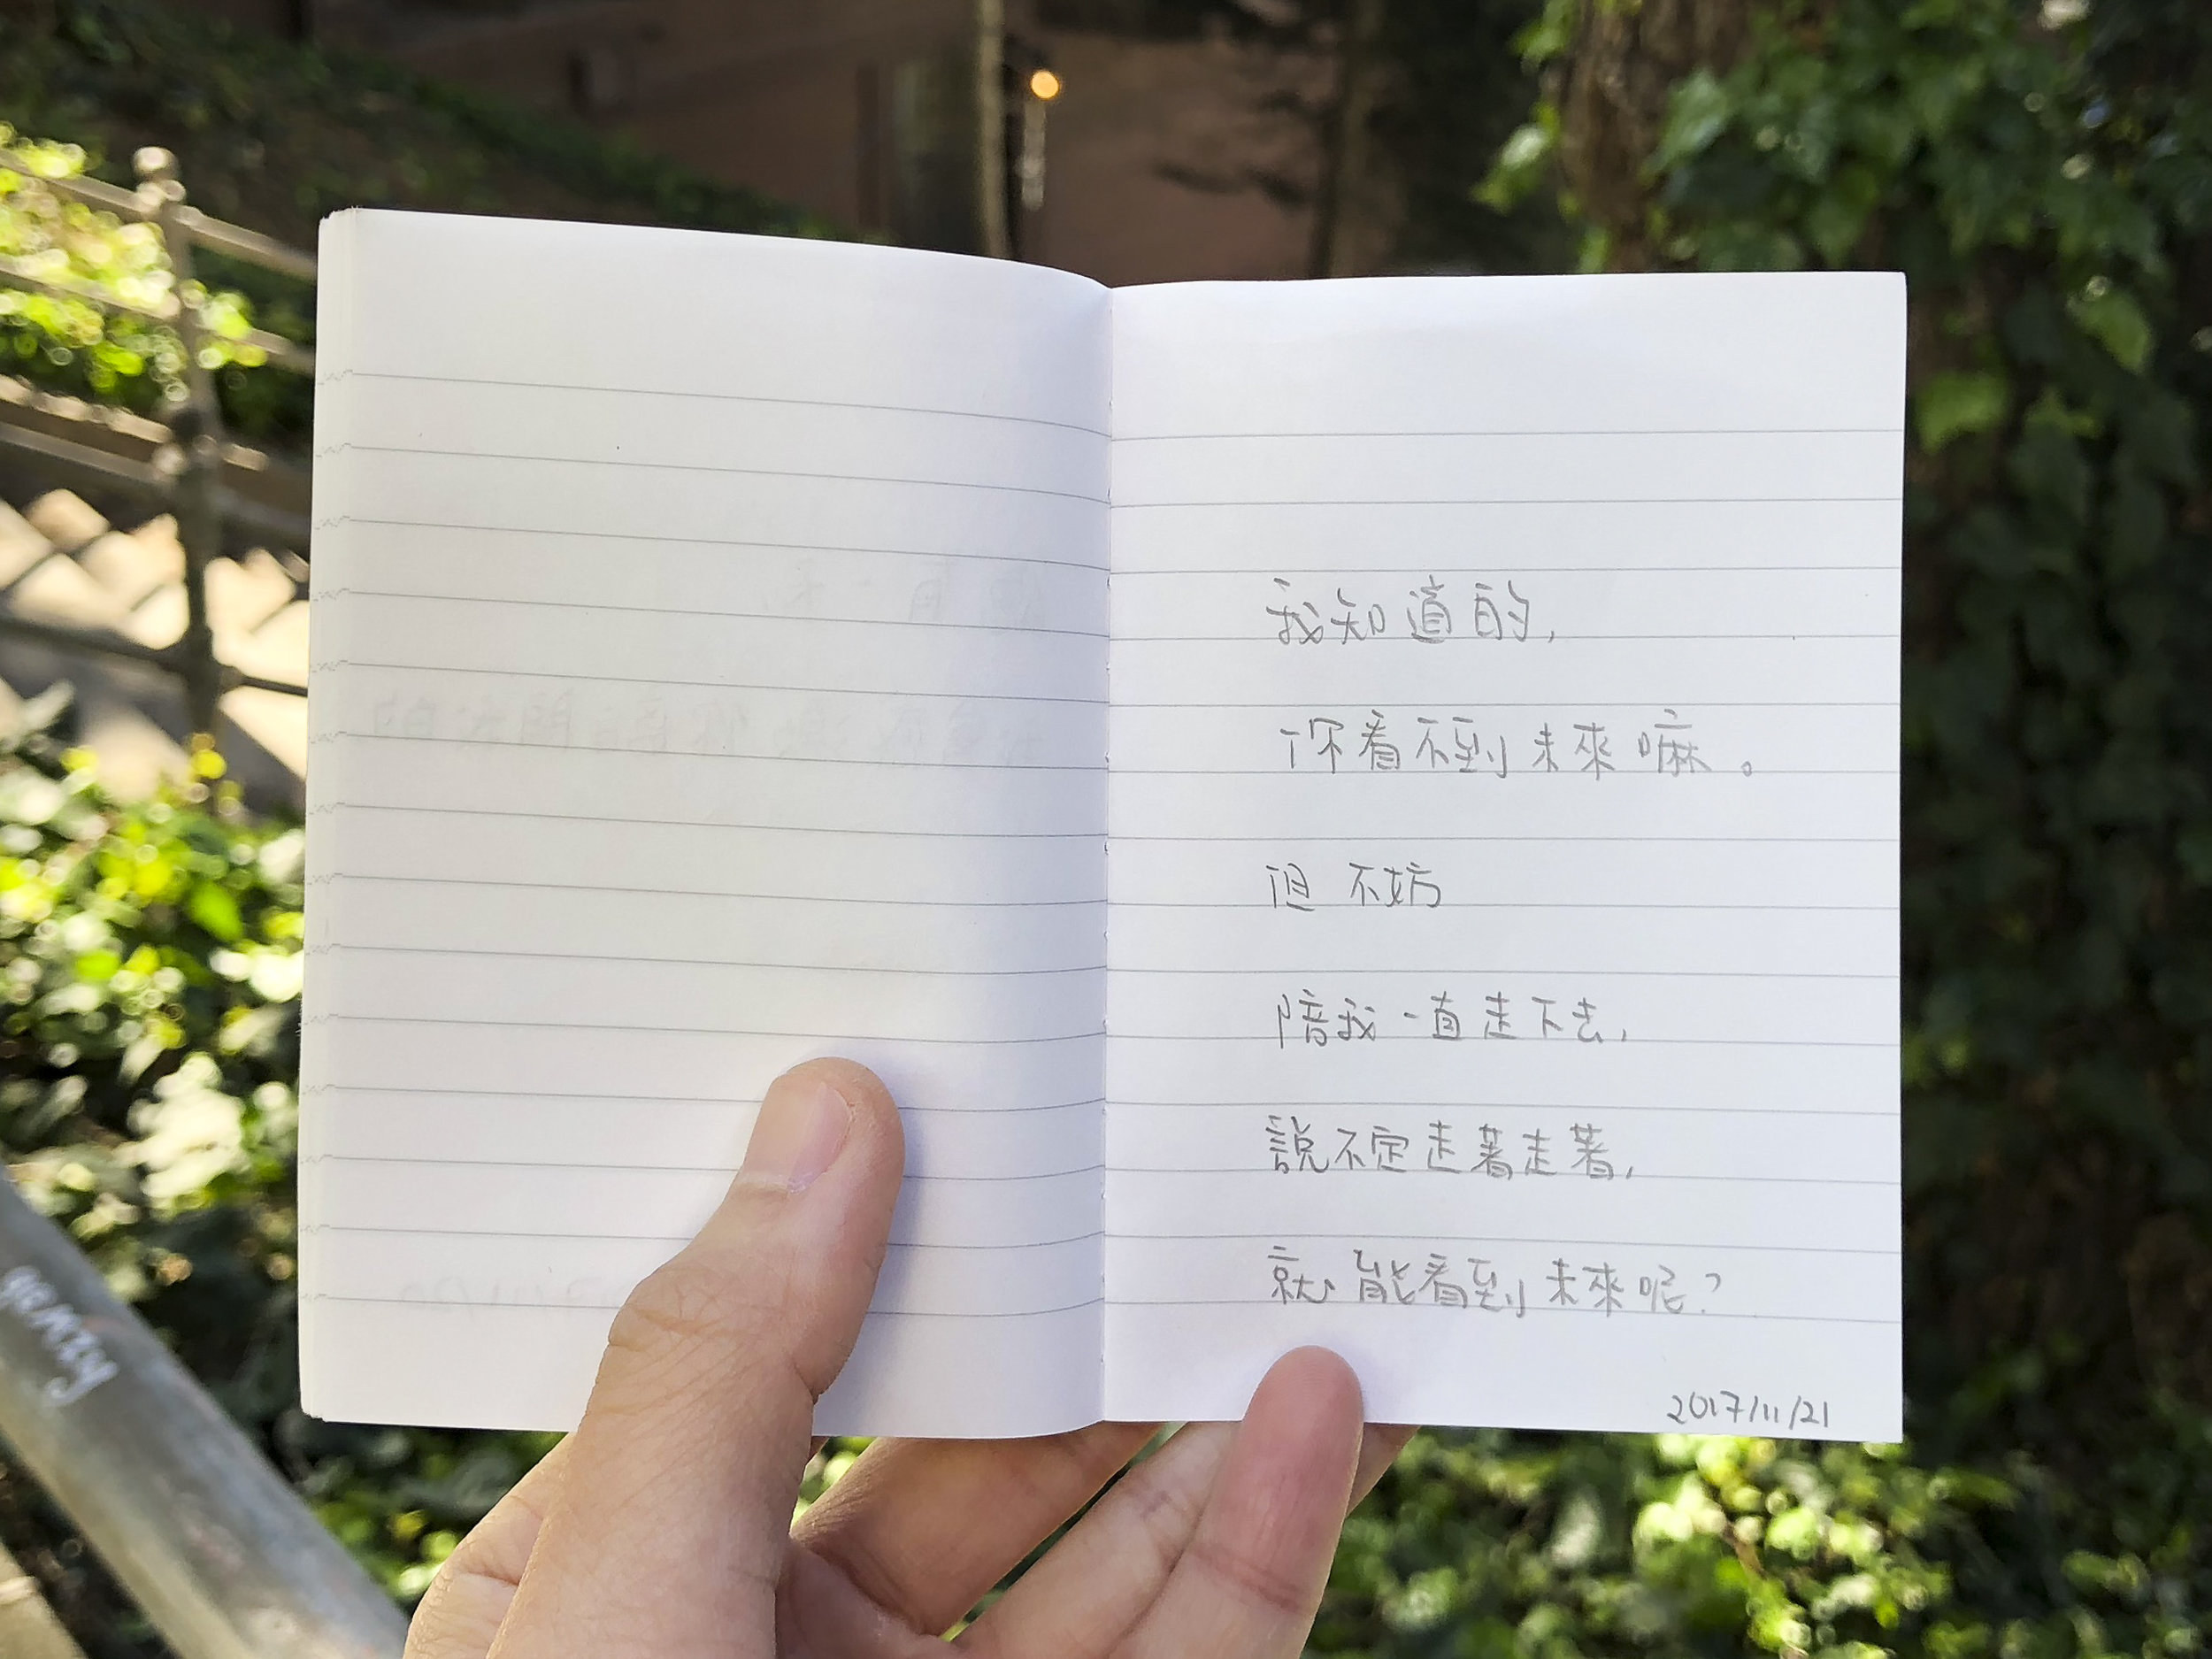 我知道的,
你看不到未來嘛。
但不妨
陪我一直走下去,
說不定走著走著,
就能看到未來呢?
2017/11/21